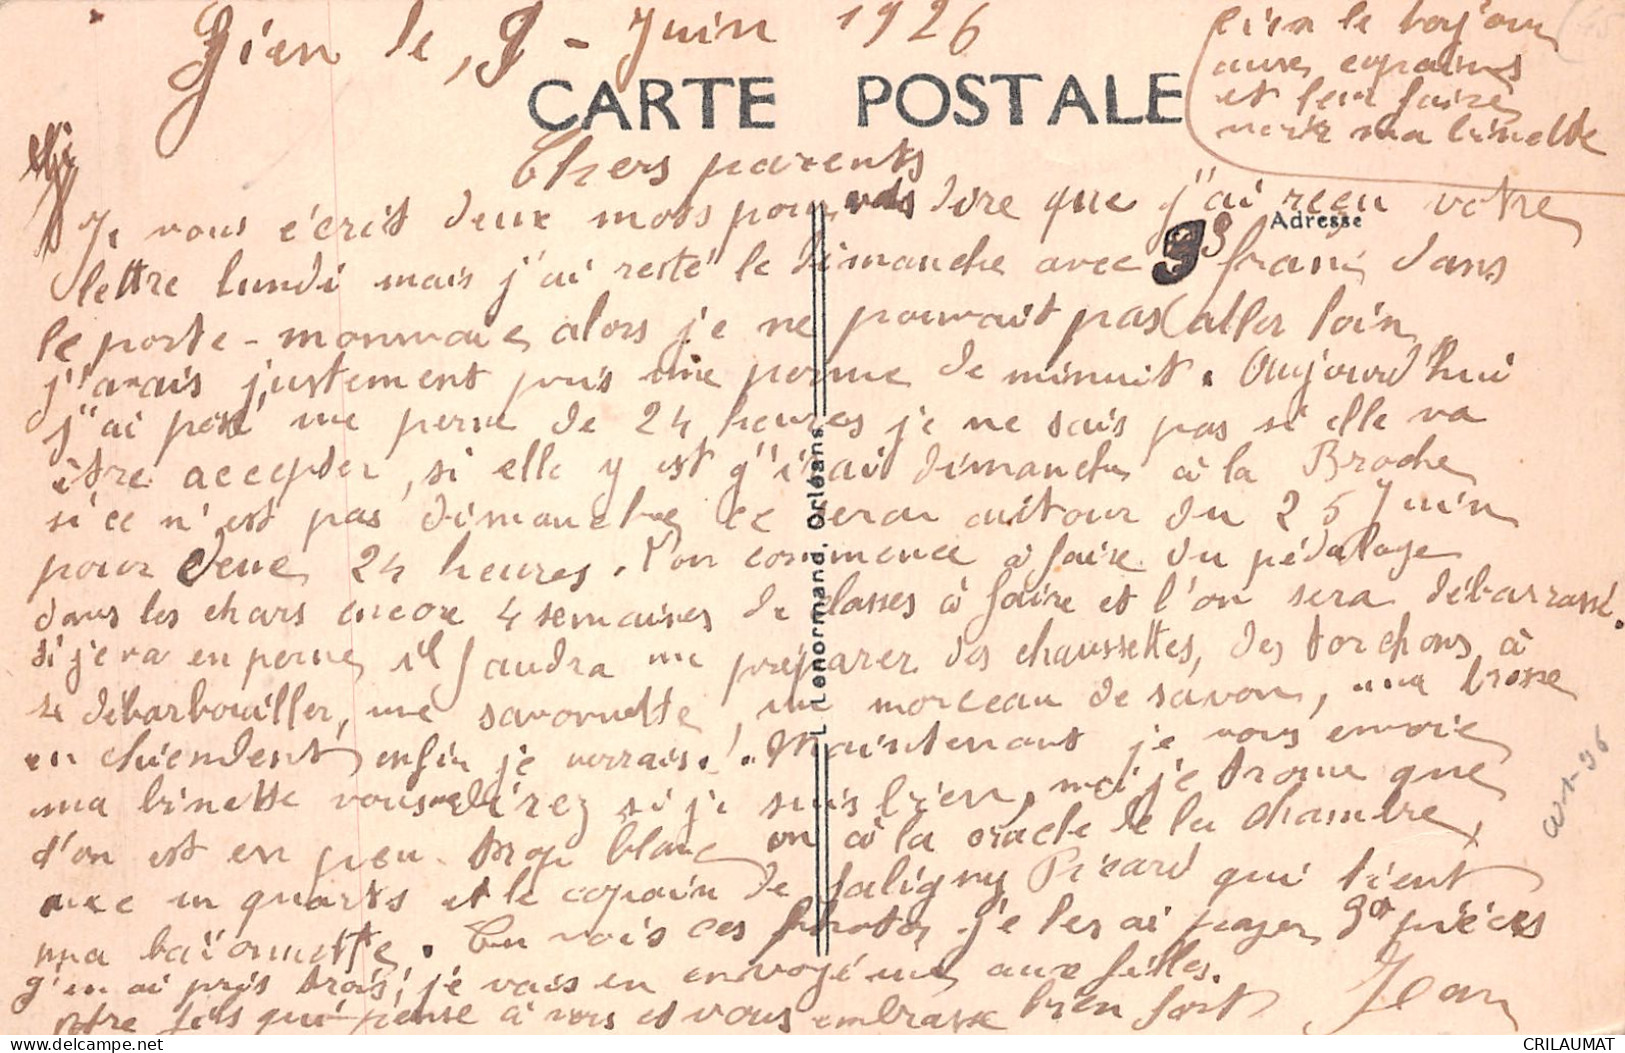 Gien le, 9 - Juin 1926
CARTE POSTALE
bien le bonjour
aux copains
et leur faire
voir ma binette
Chers parents
Adresse
Je vous écrit deux mots pour vous dire que j'ai reçu votre
lettre lundi mais j'ai resté le dimanche avec 9 franc dans
le porte-monnaie, alors je ne pouvait pas aller loin,
j'avais justement pris une perme de minuit. Aujourd'hui
j"ai posé une perme de 24 heures je ne sais pas si elle va
être accepter, si elle y est j"irai dimanche à la Broche
si ce n'est pas dimanche ce serai autour du 25 Juin
pour deux 24 heures. L'on commence à faire du pédalage
dans les chars encore 4 semaines de classes à faire et l'on sera débarrassé.
si je va en perme, il faudra me préparer des chaussettes, des torchons à
se débarbouiller, une savonnette, un morceau de savon, une brosse
en chiendent, enfin je verrais! Maintenant je vous envoie
ma binette vous me direz si je suis bien, moi je trouve que
d'on est en peu trop blanc on à la oracle de la chambre,
avec un quarts et le copain de Saligny Picard qui tient
ma baïonnette. Tu vois ces photos, je les ai payer 30 pièces
j'en ai pris trois, je vais en envoyé une aux filles.
votre fils qui pense à vous et vous embrasse bien fort Jean
L. Lenormand, Orléans
CRILAUMAT